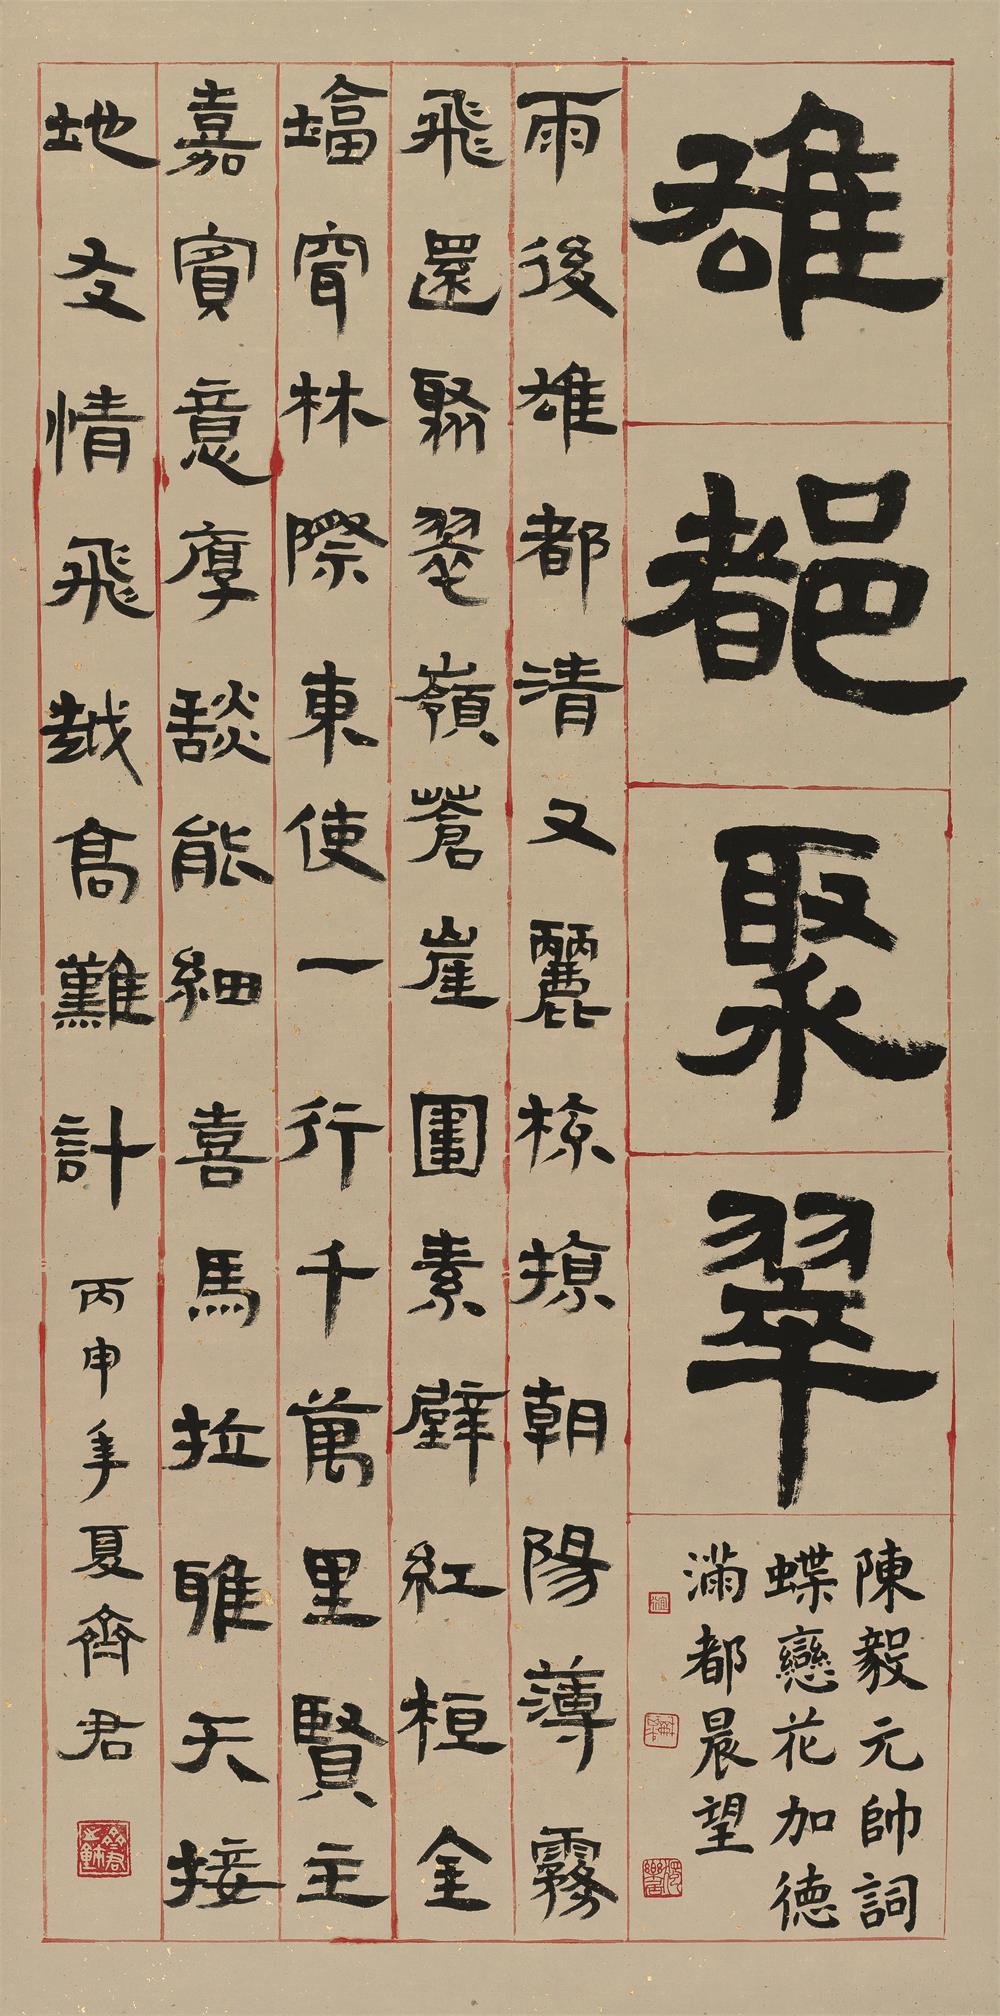 雄都聚翠
陳毅元帥詞
蝶戀花加德
滿都晨望
雨後雄都清又麗梳掠朝陽薄霧
飛還聚翠嶺蒼崖圍素壁紅桓金
塔穹林際東使一行千萬里賢主
嘉賓意厚談能細喜馬拉雅天接
地友情飛越高難計丙申年夏齊君